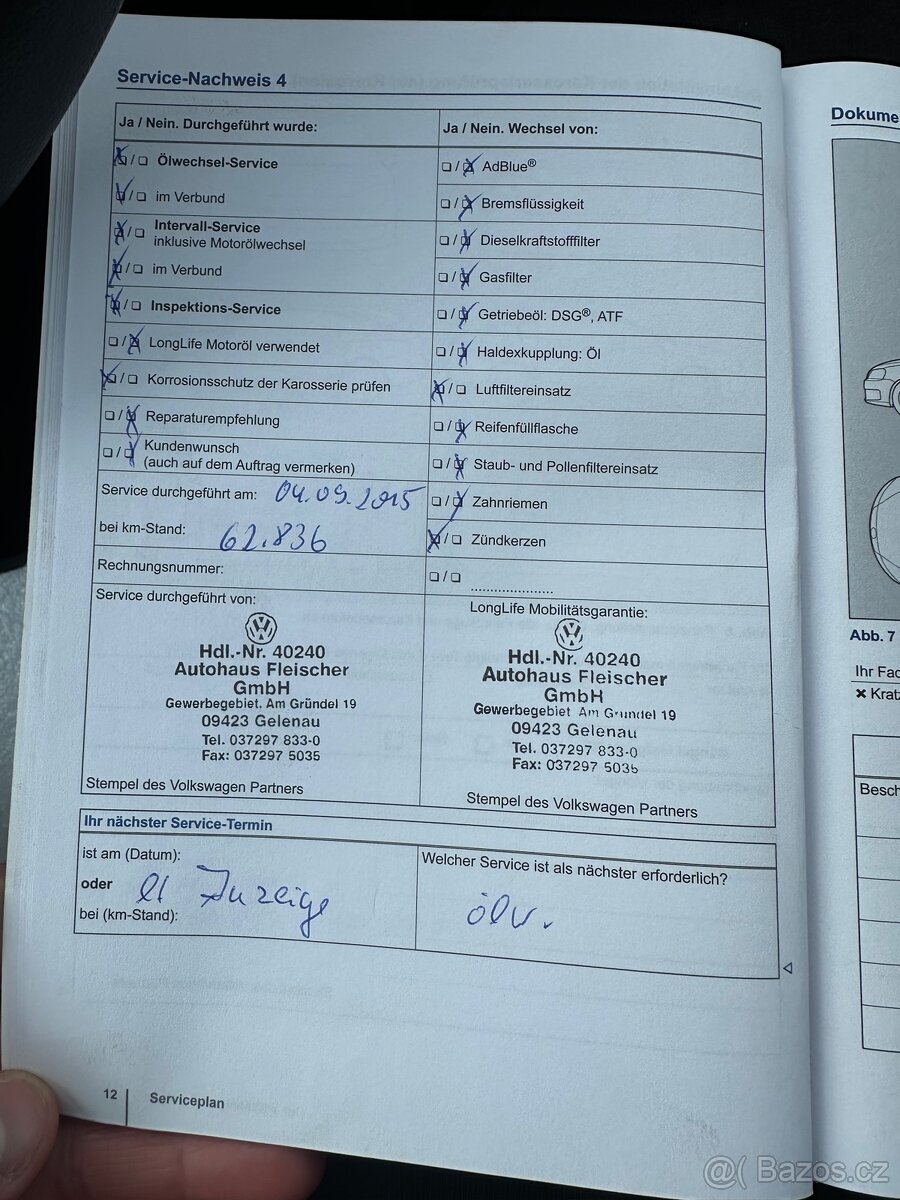 Service-Nachweis 4
Ja / Nein. Durchgeführt wurde:
☒ / ☐ Ölwechsel-Service
☒ / ☐ im Verbund
☒ / ☐ Intervall-Service
inklusive Motorölwechsel
☒ / ☐ im Verbund
☒ / ☐ Inspektions-Service
☐ / ☒ LongLife Motoröl verwendet
☒ / ☐ Korrosionsschutz der Karosserie prüfen
☐ / ☒ Reparaturempfehlung
☐ / ☒ Kundenwunsch
(auch auf dem Auftrag vermerken)
Service durchgeführt am: 04.09.2015
bei km-Stand: 62.836
Rechnungsnummer:
Service durchgeführt von:
Hdl.-Nr. 40240
Autohaus Fleischer
GmbH
Gewerbegebiet. Am Gründel 19
09423 Gelenau
Tel. 037297 833-0
Fax: 037297 5035
Stempel des Volkswagen Partners
Ja / Nein. Wechsel von:
☐ / ☒ AdBlue®
☐ / ☒ Bremsflüssigkeit
☐ / ☒ Dieselkraftstofffilter
☐ / ☒ Gasfilter
☐ / ☒ Getriebeöl: DSG®, ATF
☐ / ☒ Haldexkupplung: Öl
☒ / ☐ Luftfiltereinsatz
☐ / ☒ Reifenfüllflasche
☐ / ☒ Staub- und Pollenfiltereinsatz
☐ / ☒ Zahnriemen
☒ / ☐ Zündkerzen
☐ / ☐ ......................
LongLife Mobilitätsgarantie:
Hdl.-Nr. 40240
Autohaus Fleischer
GmbH
Gewerbegebiet Am Gründel 19
09423 Gelenau
Tel. 037297 833-0
Fax: 037297 5035
Stempel des Volkswagen Partners
Ihr nächster Service-Termin
ist am (Datum):
oder
lt Anzeige
bei (km-Stand):
Welcher Service ist als nächster erforderlich?
ölw.
12
Serviceplan
Dokume
Abb. 7
Ihr Fac
✖ Kratz
Besch
@( Bazos.cz